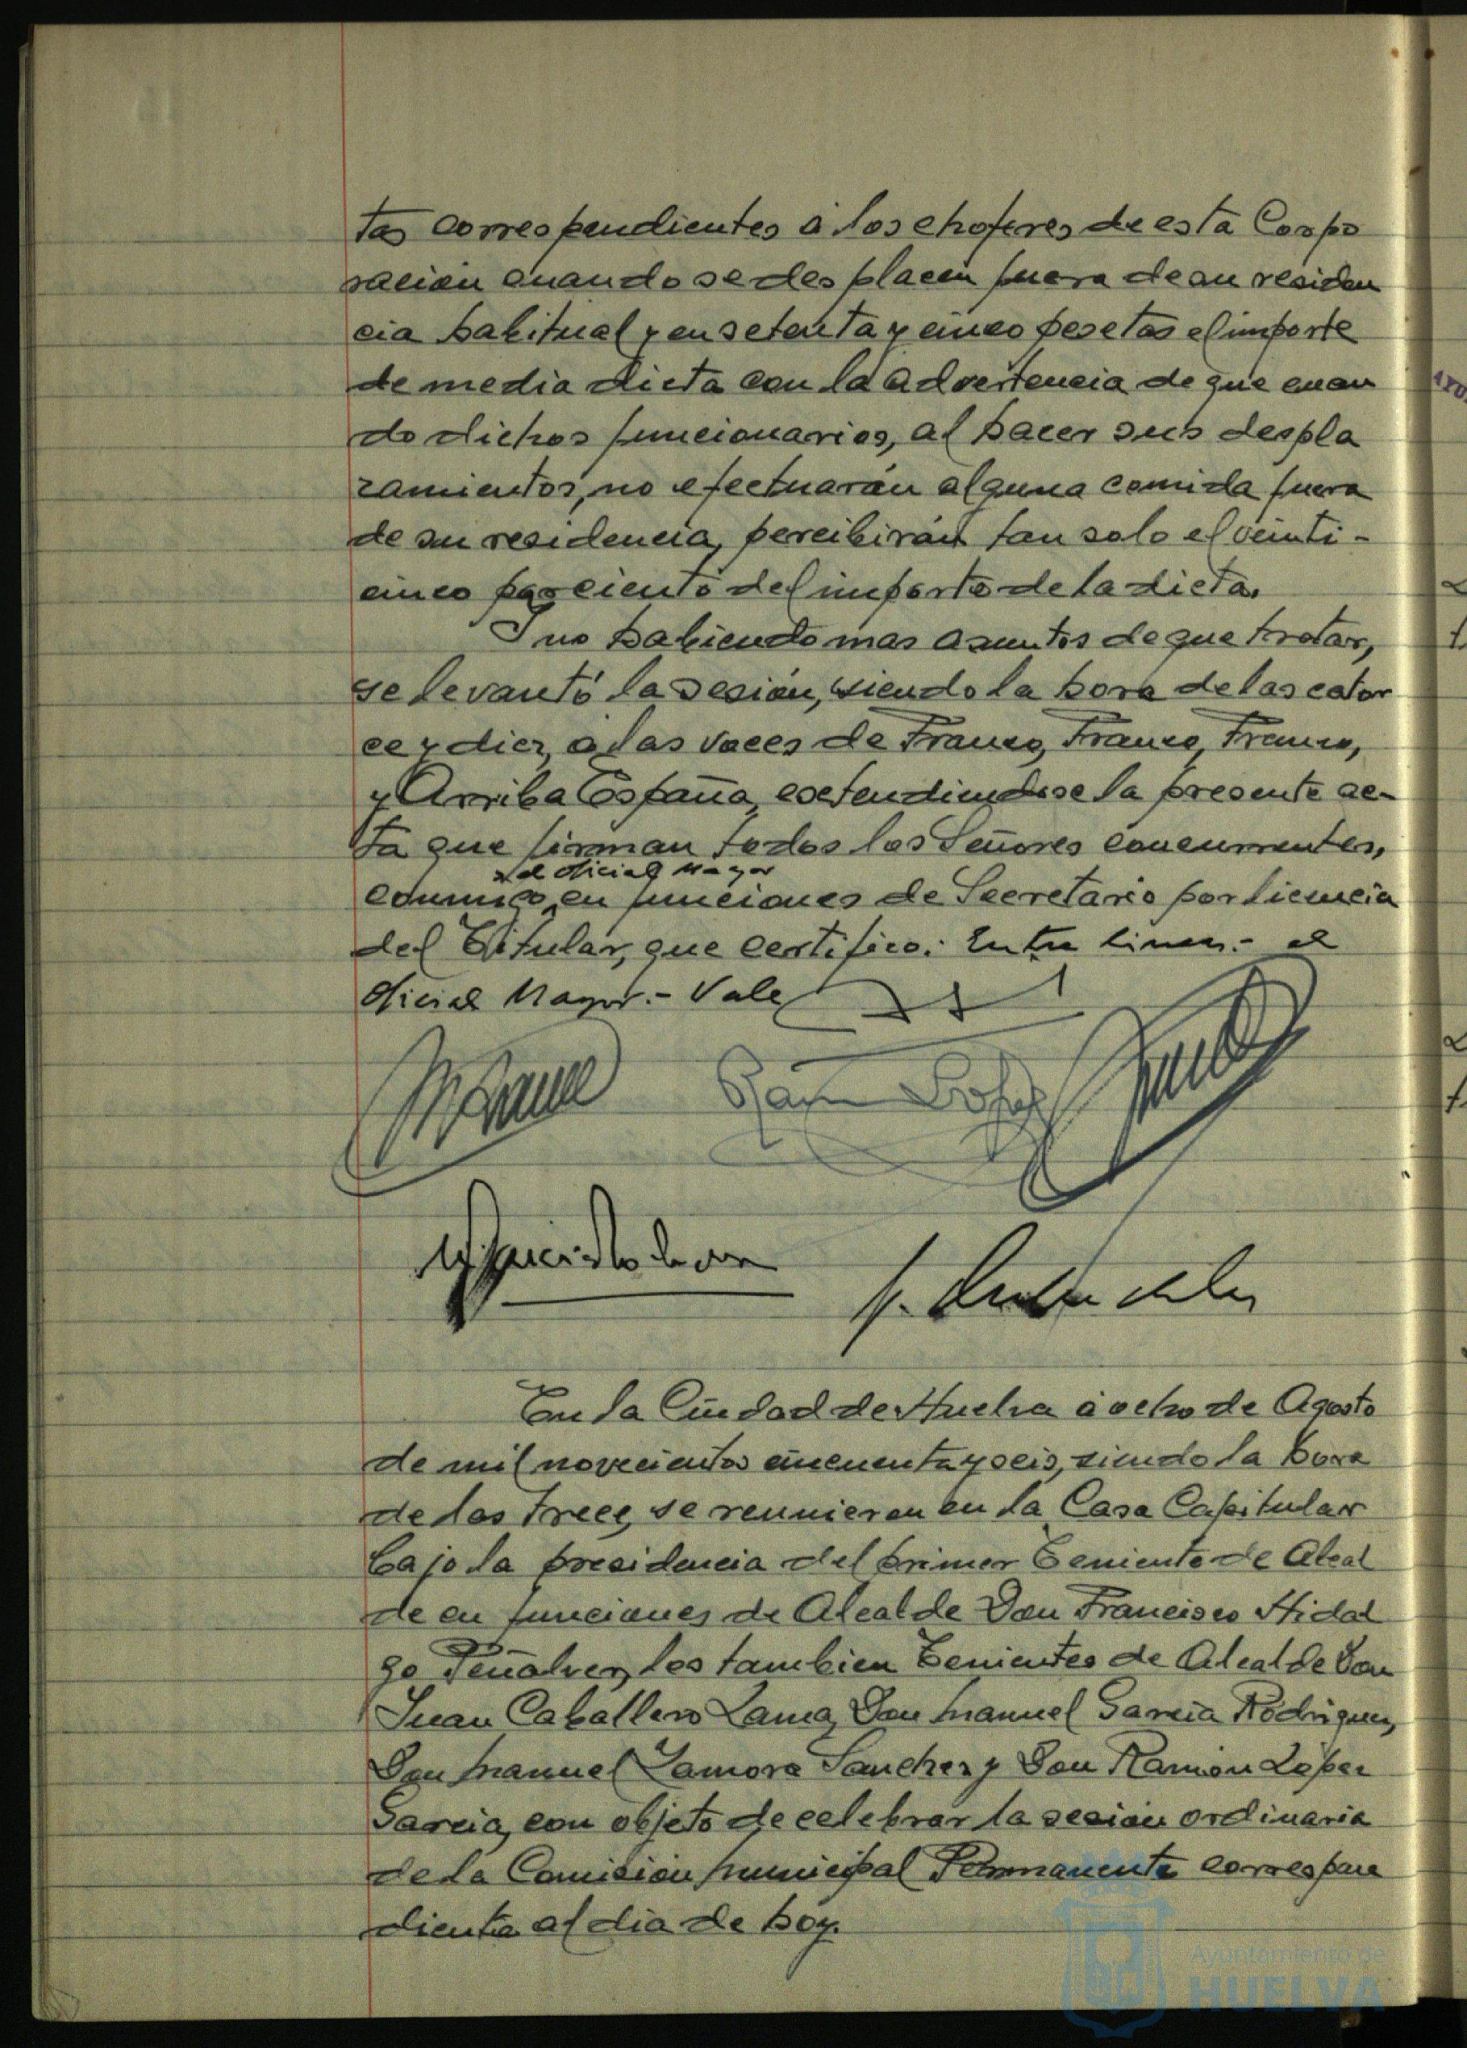 tas correspondientes á los choferes de esta Corpo
racion cuando se des placen fuera de su residen
cia habitual y en setenta y cinco pesetas el importe
de media dieta con la advertencia de que cuan
do dichos funcionarios, al hacer sus despla
zamientos, no efectuarán alguna comida fuera
de su residencia, percibirán tan solo el veinti-
cinco por ciento del importe de la dieta.
Y no habiendo mas asuntos de que tratar,
se levantó la sesión, siendo la hora de las cator
ce y diez, a las voces de Franco, Franco, Franco,
y Arriba España, extendiendose la presente ac-
ta que firman todos los Señores concurrentes,
el Oficial Mayor
conmigo, en funciones de Secretario por licencia
del Titular, que certifico: Entre lineas.- el
Oficial Mayor.- Vale
Ramón López
En la Ciudad de Huelva á ocho de Agosto
de mil novecientos cincuenta y seis, siendo la hora
de las trece, se reunieron en la Casa Capitular
bajo la presidencia del primer Teniente de Alcal
de en funciones de Alcalde Don Francisco Hidal
go Peñalver, los tambien Tenientes de Alcalde Don
Juan Caballero Lama, Don Manuel García Rodriguez,
Don Manuel Zamora Sanchez y Don Ramón López
Garcia, con objeto de celebrar la sesión ordinaria
de la Comisión Municipal Permanente correspon
diente al dia de hoy.
Ayuntamiento de
HUELVA